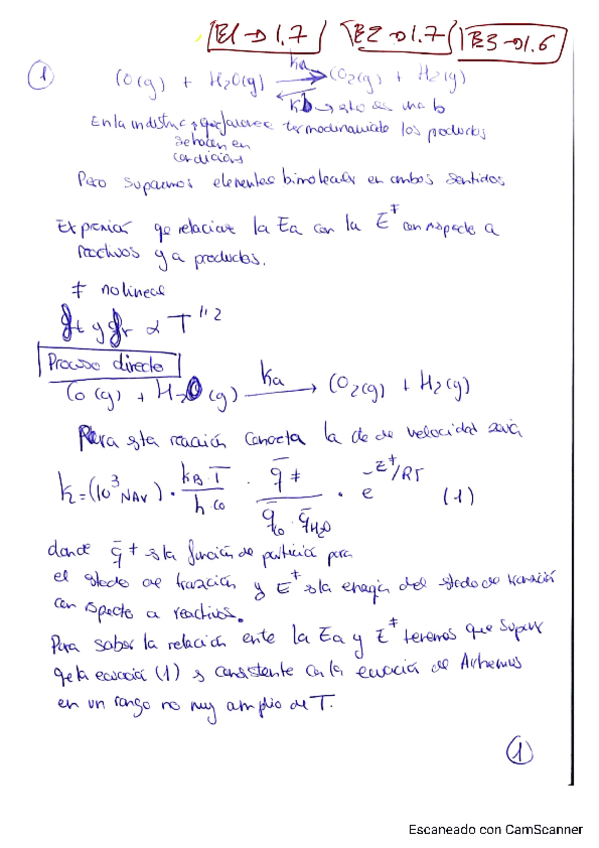 E1→1.7 E2→1.7 E3→1.6
① CO(g) + H2O(g) ⇌ CO2(g) + H2(g)
ka
kb → esto es una b
En la industria termodinamicamente los productos
se hacen en
condiciones
Pero suponemos elementales bimolecular en ambos sentidos
Expresión que relacione la Ea con la E‡ con respecto a
reactivos y a productos.
‡ no lineal
ft y fr ∝ T^1/2
Proceso directo
CO(g) + H2O(g) ka → CO2(g) + H2(g)
Para esta reacción concreta la cte de velocidad será
k = (10³ NAV) · kB T / h c0 · q̄‡ / q̄CO · q̄H2O · e^-E‡/RT (1)
donde q̄‡ es la función de partición para
el estado de transición y E‡ es la energía del estado de transición
con respecto a reactivos.
Para saber la relación entre la Ea y E‡ tenemos que suponer
que la ecuación (1) es consistente con la ecuación de Arrhenius
en un rango no muy amplio de T.
①
Escaneado con CamScanner